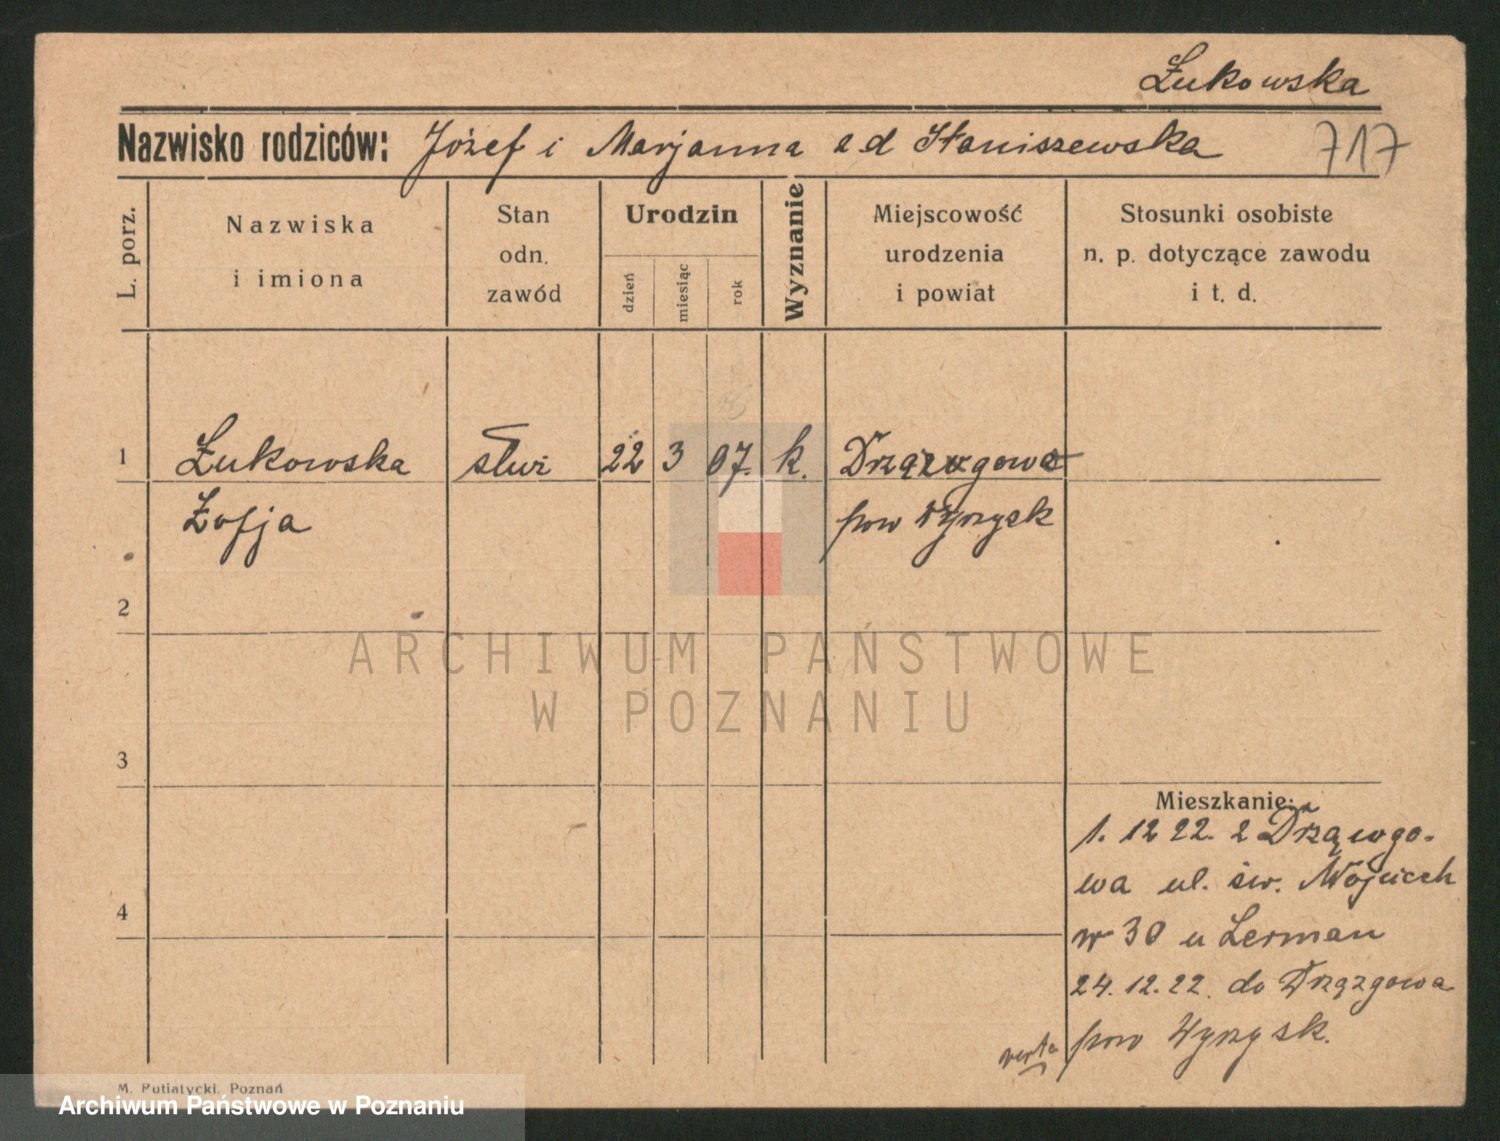 Żukowska
Nazwisko rodziców: Józef i Marjanna z d Staniszewska
717
L. porz.
Nazwiska
i imiona
Stan
odn.
zawód
Urodzin
dzień
miesiąc
rok
Wyznanie
Miejscowość
urodzenia
i powiat
Stosunki osobiste
n. p. dotyczące zawodu
i t. d.
1 Żukowska służ 22 3 07. k.
Zofja pow Wyrzysk
2
3
4
ARCHIWUM PAŃSTWOWE
W POZNANIU
Mieszkanie:
1. 12 22. z
wa ul. św. Wojciech
nr 30 u Lerman
24. 12. 22. do Drązgowa
pow Wyrzysk.
verte
M. Putiatycki, Poznań
Archiwum Państwowe w Poznaniu